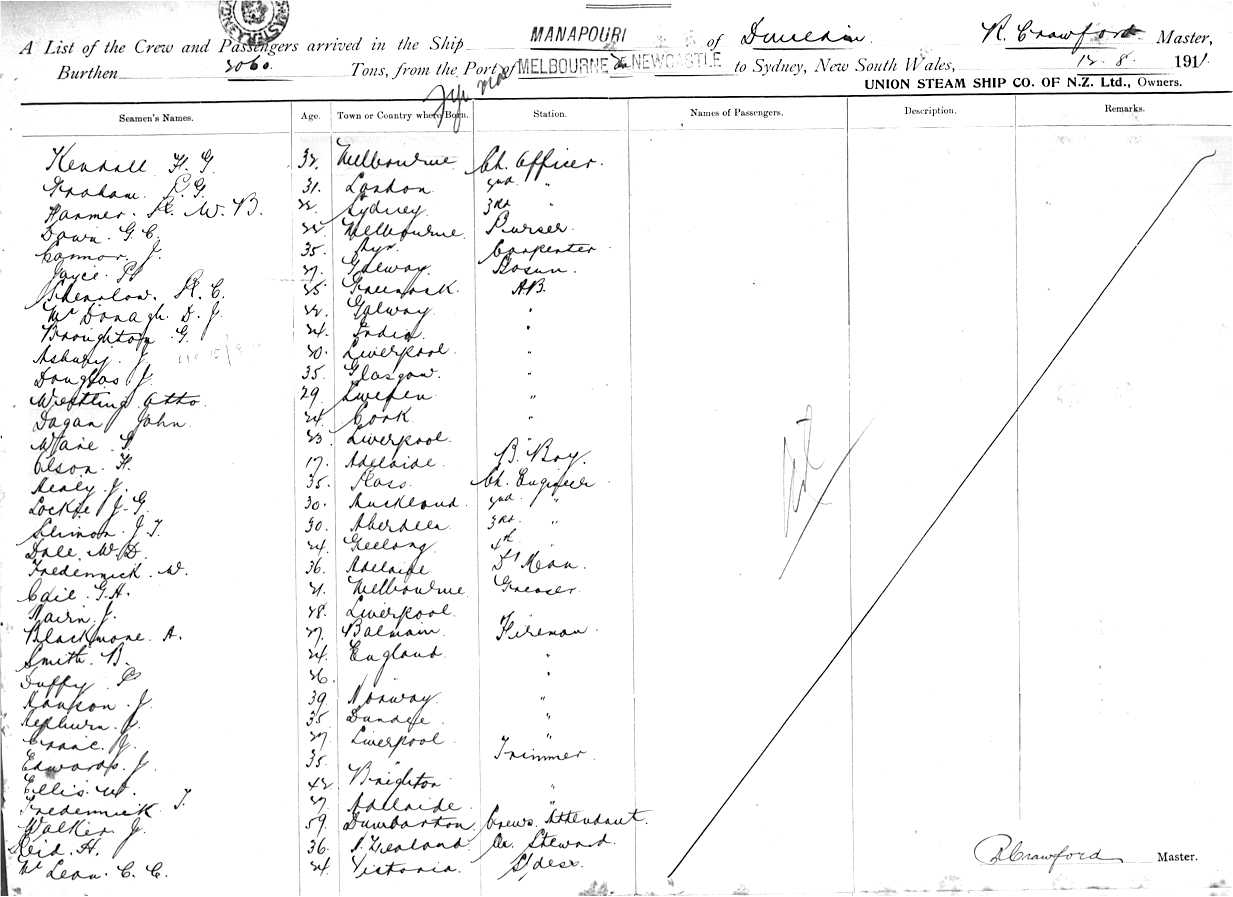 A List of the Crew and Passengers arrived in the Ship MANAPOURI of Dunedin R. Crawford Master,
Burthen 2060 Tons, from the Port of MELBOURNE NEWCASTLE to Sydney, New South Wales, 12. 8. 1911
UNION STEAM SHIP CO. OF N.Z. Ltd., Owners.
Seamen's Names. Age. Town or Country where Born. Station. Names of Passengers. Description. Remarks.
Kendall H. G. 32. Melbourne Ch. Officer.
Graham. G. 31. London 2nd "
Hanmer. R. W. B. 22. Sydney. 3rd "
Dawn. G. C. Melbourne Purser
Connor. J. 35. Ayr. Carpenter
Joyce. P. 27. Galway. Bosun.
R. C. 25 Greenock. A.B.
McDonagh. D. J. 22. Galway "
Broughton. G. 24. India "
Asbury. J. 30. Liverpool. "
Douglas J. 35. Glasgow. "
Otto. 29. Sweden "
Dagan John 24. Cork "
23. Liverpool. "
Olson. H. 17. Adelaide. B. Boy.
Healy. J. 35. Ch. Engineer
Locke J. G. 30. Auckland 2nd "
Slimon. J. T. 30. Aberdeen 3rd "
Dale. W. D. 24. Geelong 4th "
Fredennick. W. 36. Adelaide
Cail. G. H. 21. Melbourne Greaser.
Nairn. J. 28. Liverpool. "
Blackmore. A. 27. Balmain Fireman.
Smith. B. 24. England "
Duffy. P. 26. " "
Hanson. J. 39. Norway. "
Hepburn. J. 35. Dundee "
J. 27. Liverpool "
Edwards. J. 35. " Trimmer
Ellis. W. 42. Brighton "
Fredennick T. 27. Adelaide. "
Walker J. 59. Dumbarton Crews Attendant.
Reid. H. 36. N. Zealand Steward
McLean. C. C. 24. Victoria.
R Crawford Master.